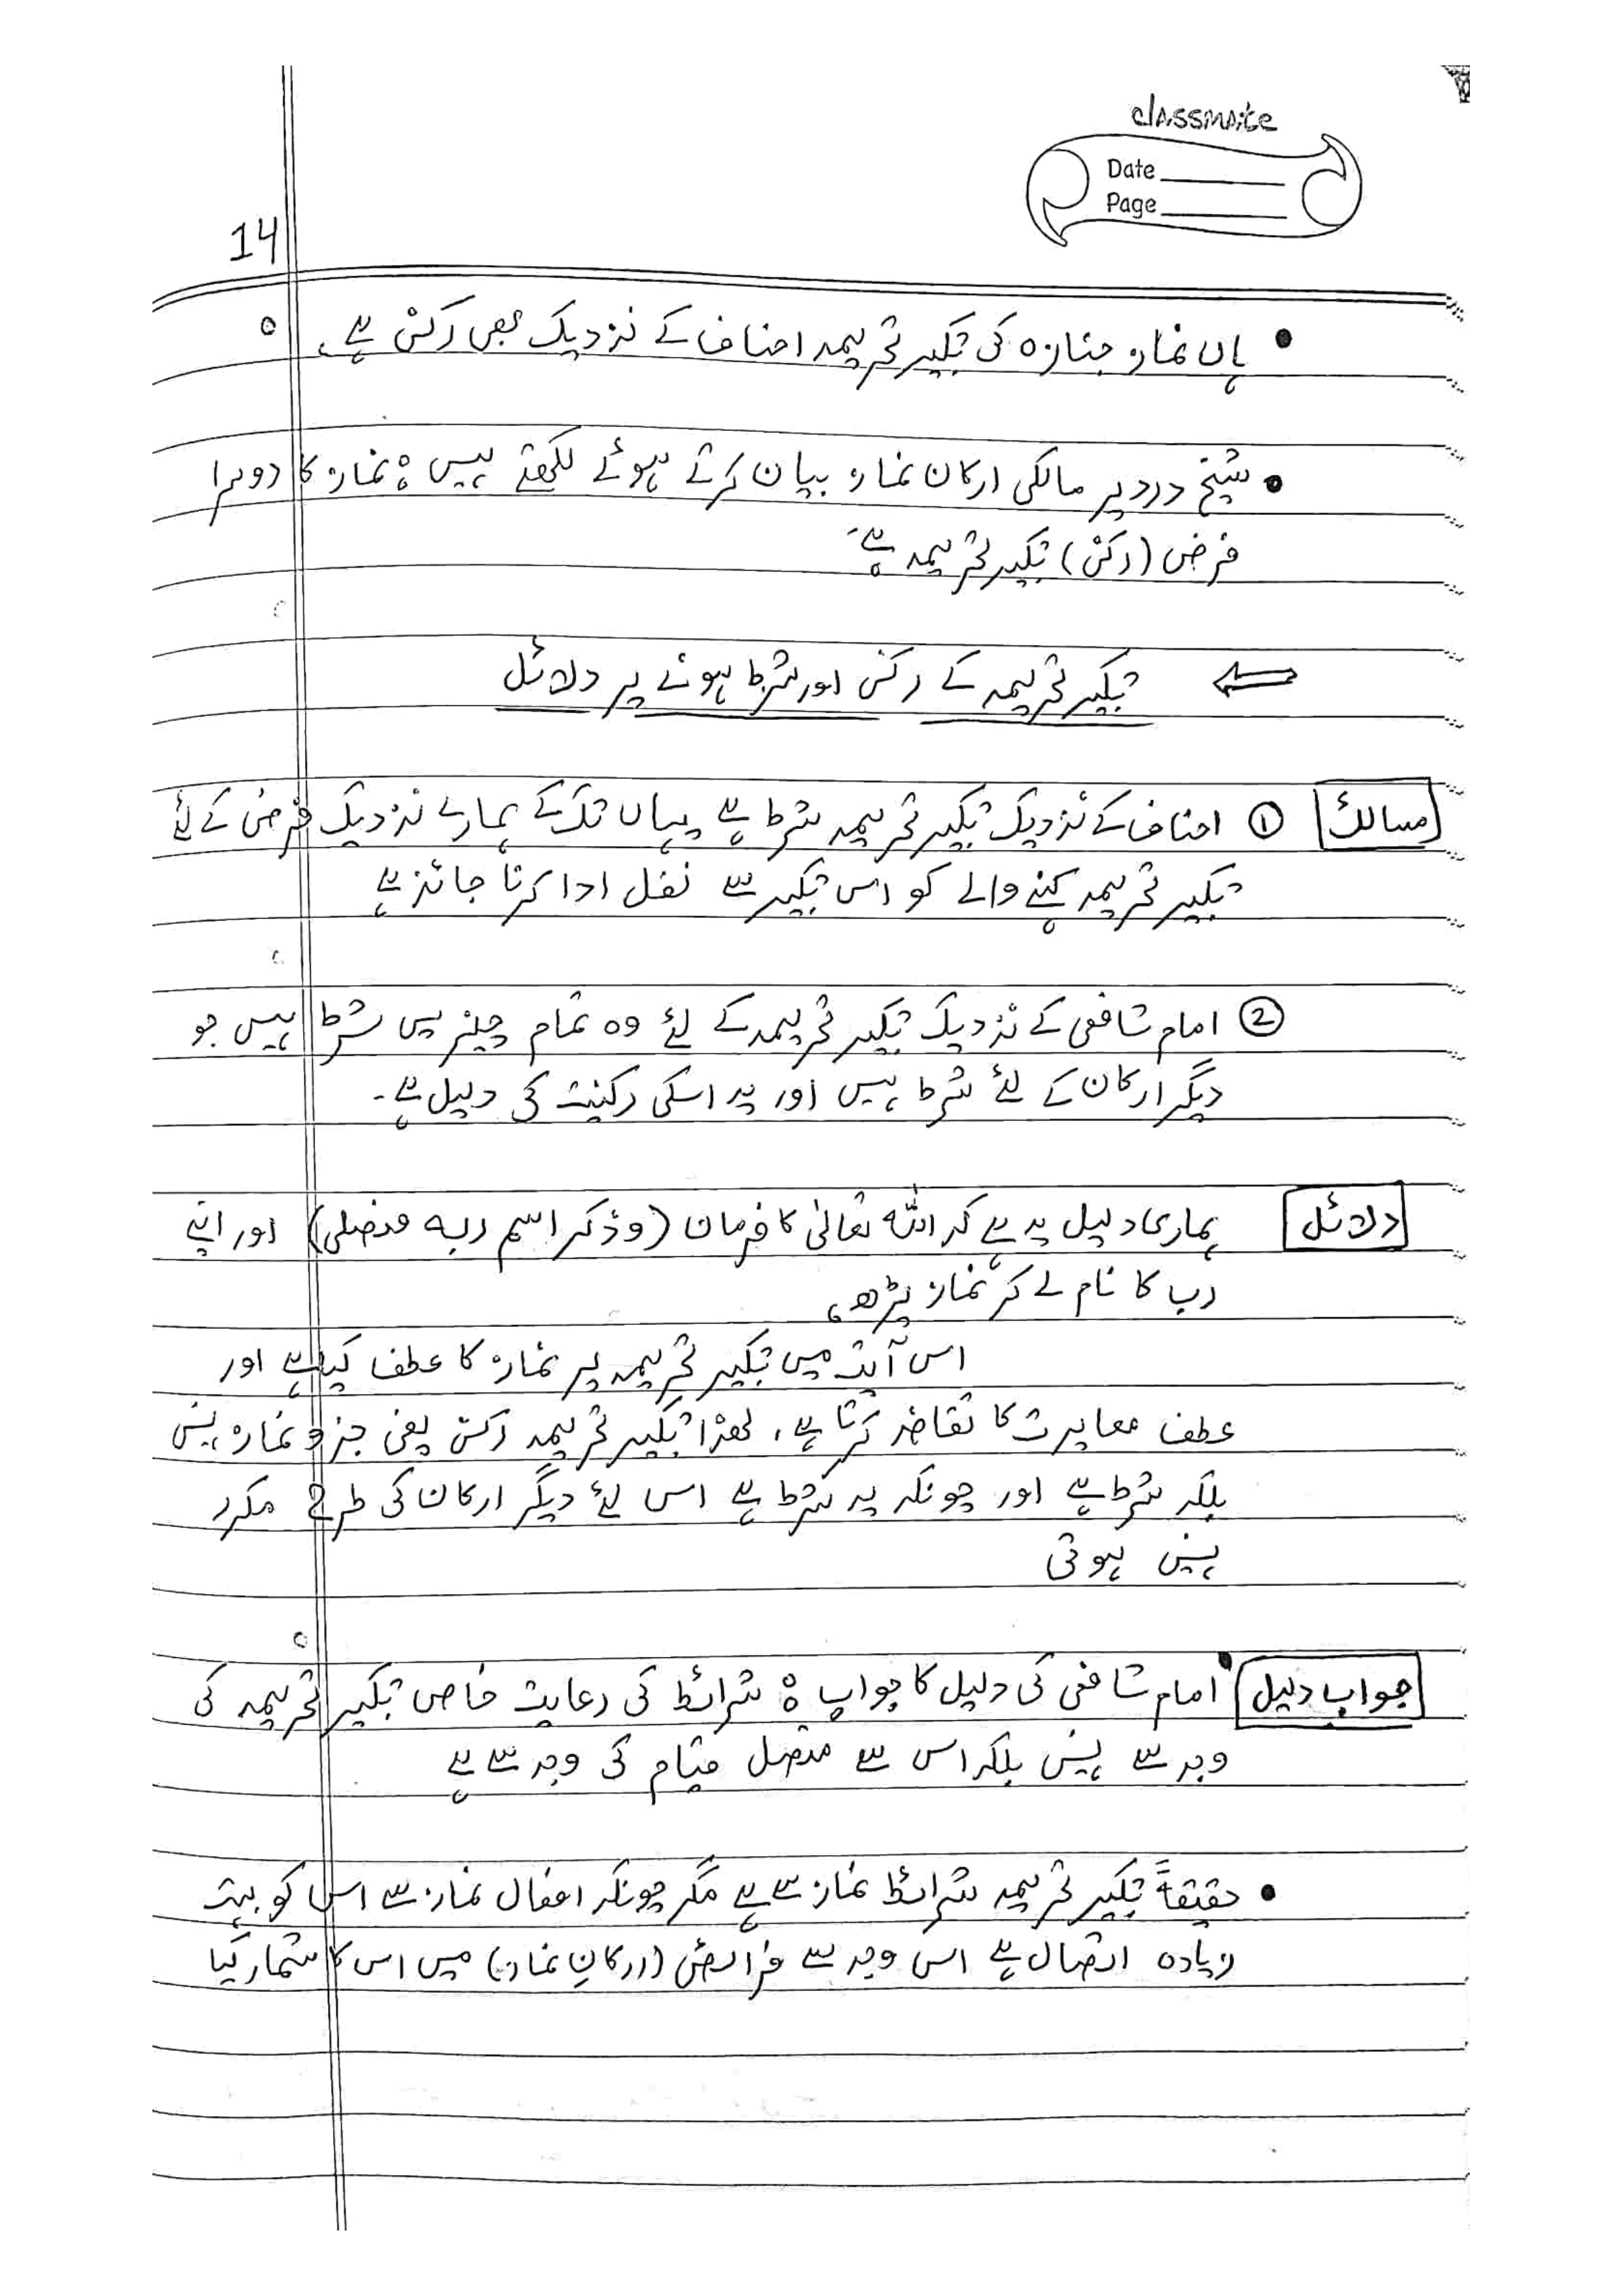 classmate
Date
Page
14
• ہاں نماز جنازہ کی تکبیر تحریمہ احناف کے نزدیک بھی رکن ہے۔
• شیخ دردیر مالکی ارکان نماز بیان کرتے ہوئے لکھتے ہیں ہ نماز کا دوسرا
فرض (رکن) تکبیر تحریمہ ہے۔
⇐ تکبیر تحریمہ کے رکن اور شرط ہونے پر دلائل
مسالک ① احناف کے نزدیک تکبیر تحریمہ شرط ہے یہاں تک کے ہمارے نزدیک فرض کے لئے
تکبیر تحریمہ کہنے والے کو اس تکبیر سے نفل ادا کرنا جائز ہے
② امام شافعی کے نزدیک تکبیر تحریمہ کے لئے وہ تمام چیزیں شرط ہیں جو
دیگر ارکان کے لئے شرط ہیں اور یہ اسکی رکنیت کی دلیل ہے۔
دلائل ہماری دلیل یہ ہے کہ اللہ تعالیٰ کا فرمان (وذکر اسم ربہ فصلی) اور اپنے
رب کا نام لے کر نماز پڑھ،
اس آیت میں تکبیر تحریمہ پر نماز کا عطف کیا ہے اور
عطف مغایرت کا تقاضہ کرتا ہے، لھذا تکبیر تحریمہ رکن یعنی جزو نماز نہیں
بلکہ شرط ہے اور چونکہ یہ شرط ہے اس لئے دیگر ارکان کی طرح مکرر
نہیں ہوتی
جواب دلیل امام شافعی کی دلیل کا جواب ہ شرائط کی رعایت خاص تکبیر تحریمہ کی
وجہ سے نہیں بلکہ اس سے متصل قیام کی وجہ سے ہے
• حقیقۃً تکبیر تحریمہ شرائط نماز سے ہے مگر چونکہ افعال نماز سے اس کو بہت
زیادہ اتصال ہے اس وجہ سے فرائض (ارکانِ نماز) میں اس کا شمار کیا